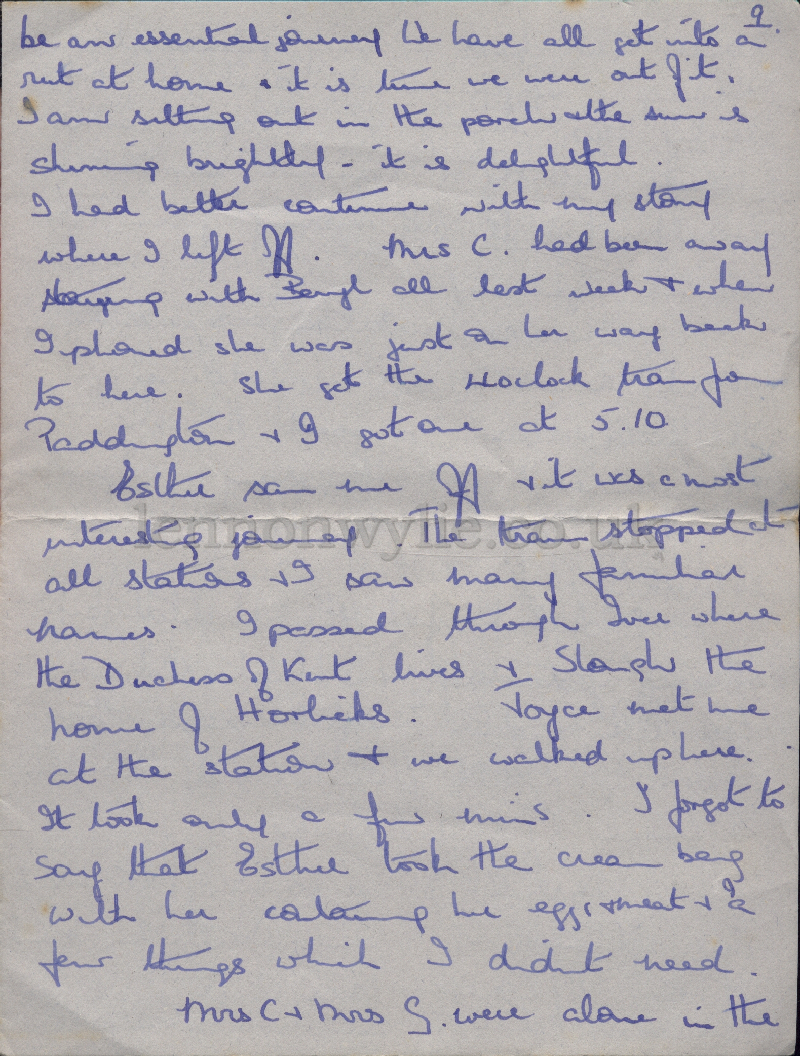 9.
be an essential journey We have all got into a
rut at home & it is time we were out of it.
I am sitting out in the porch & the sun is
shining brightly - it is delightful.
I had better continue with my story
where I left off. Mrs C. had been away
staying with Beryl all last week & when
I phoned she was just on her way back
to here. She gets the 4 oclock train from
Paddington & I got one at 5.10
Esther saw me off & it was a most
interesting journey. The train stopped at
all stations & I saw many familiar
names. I passed through Iver where
the Duchess of Kent lives & Slough the
home of Horlicks. Joyce met me
at the station & we walked up here.
It took only a few mins. I forgot to
say that Esther took the cream bag
with her containing her eggs & meat & a
few things which I didn't need.
Mrs C & Mrs G. were alone in the
lennonwylie.co.uk